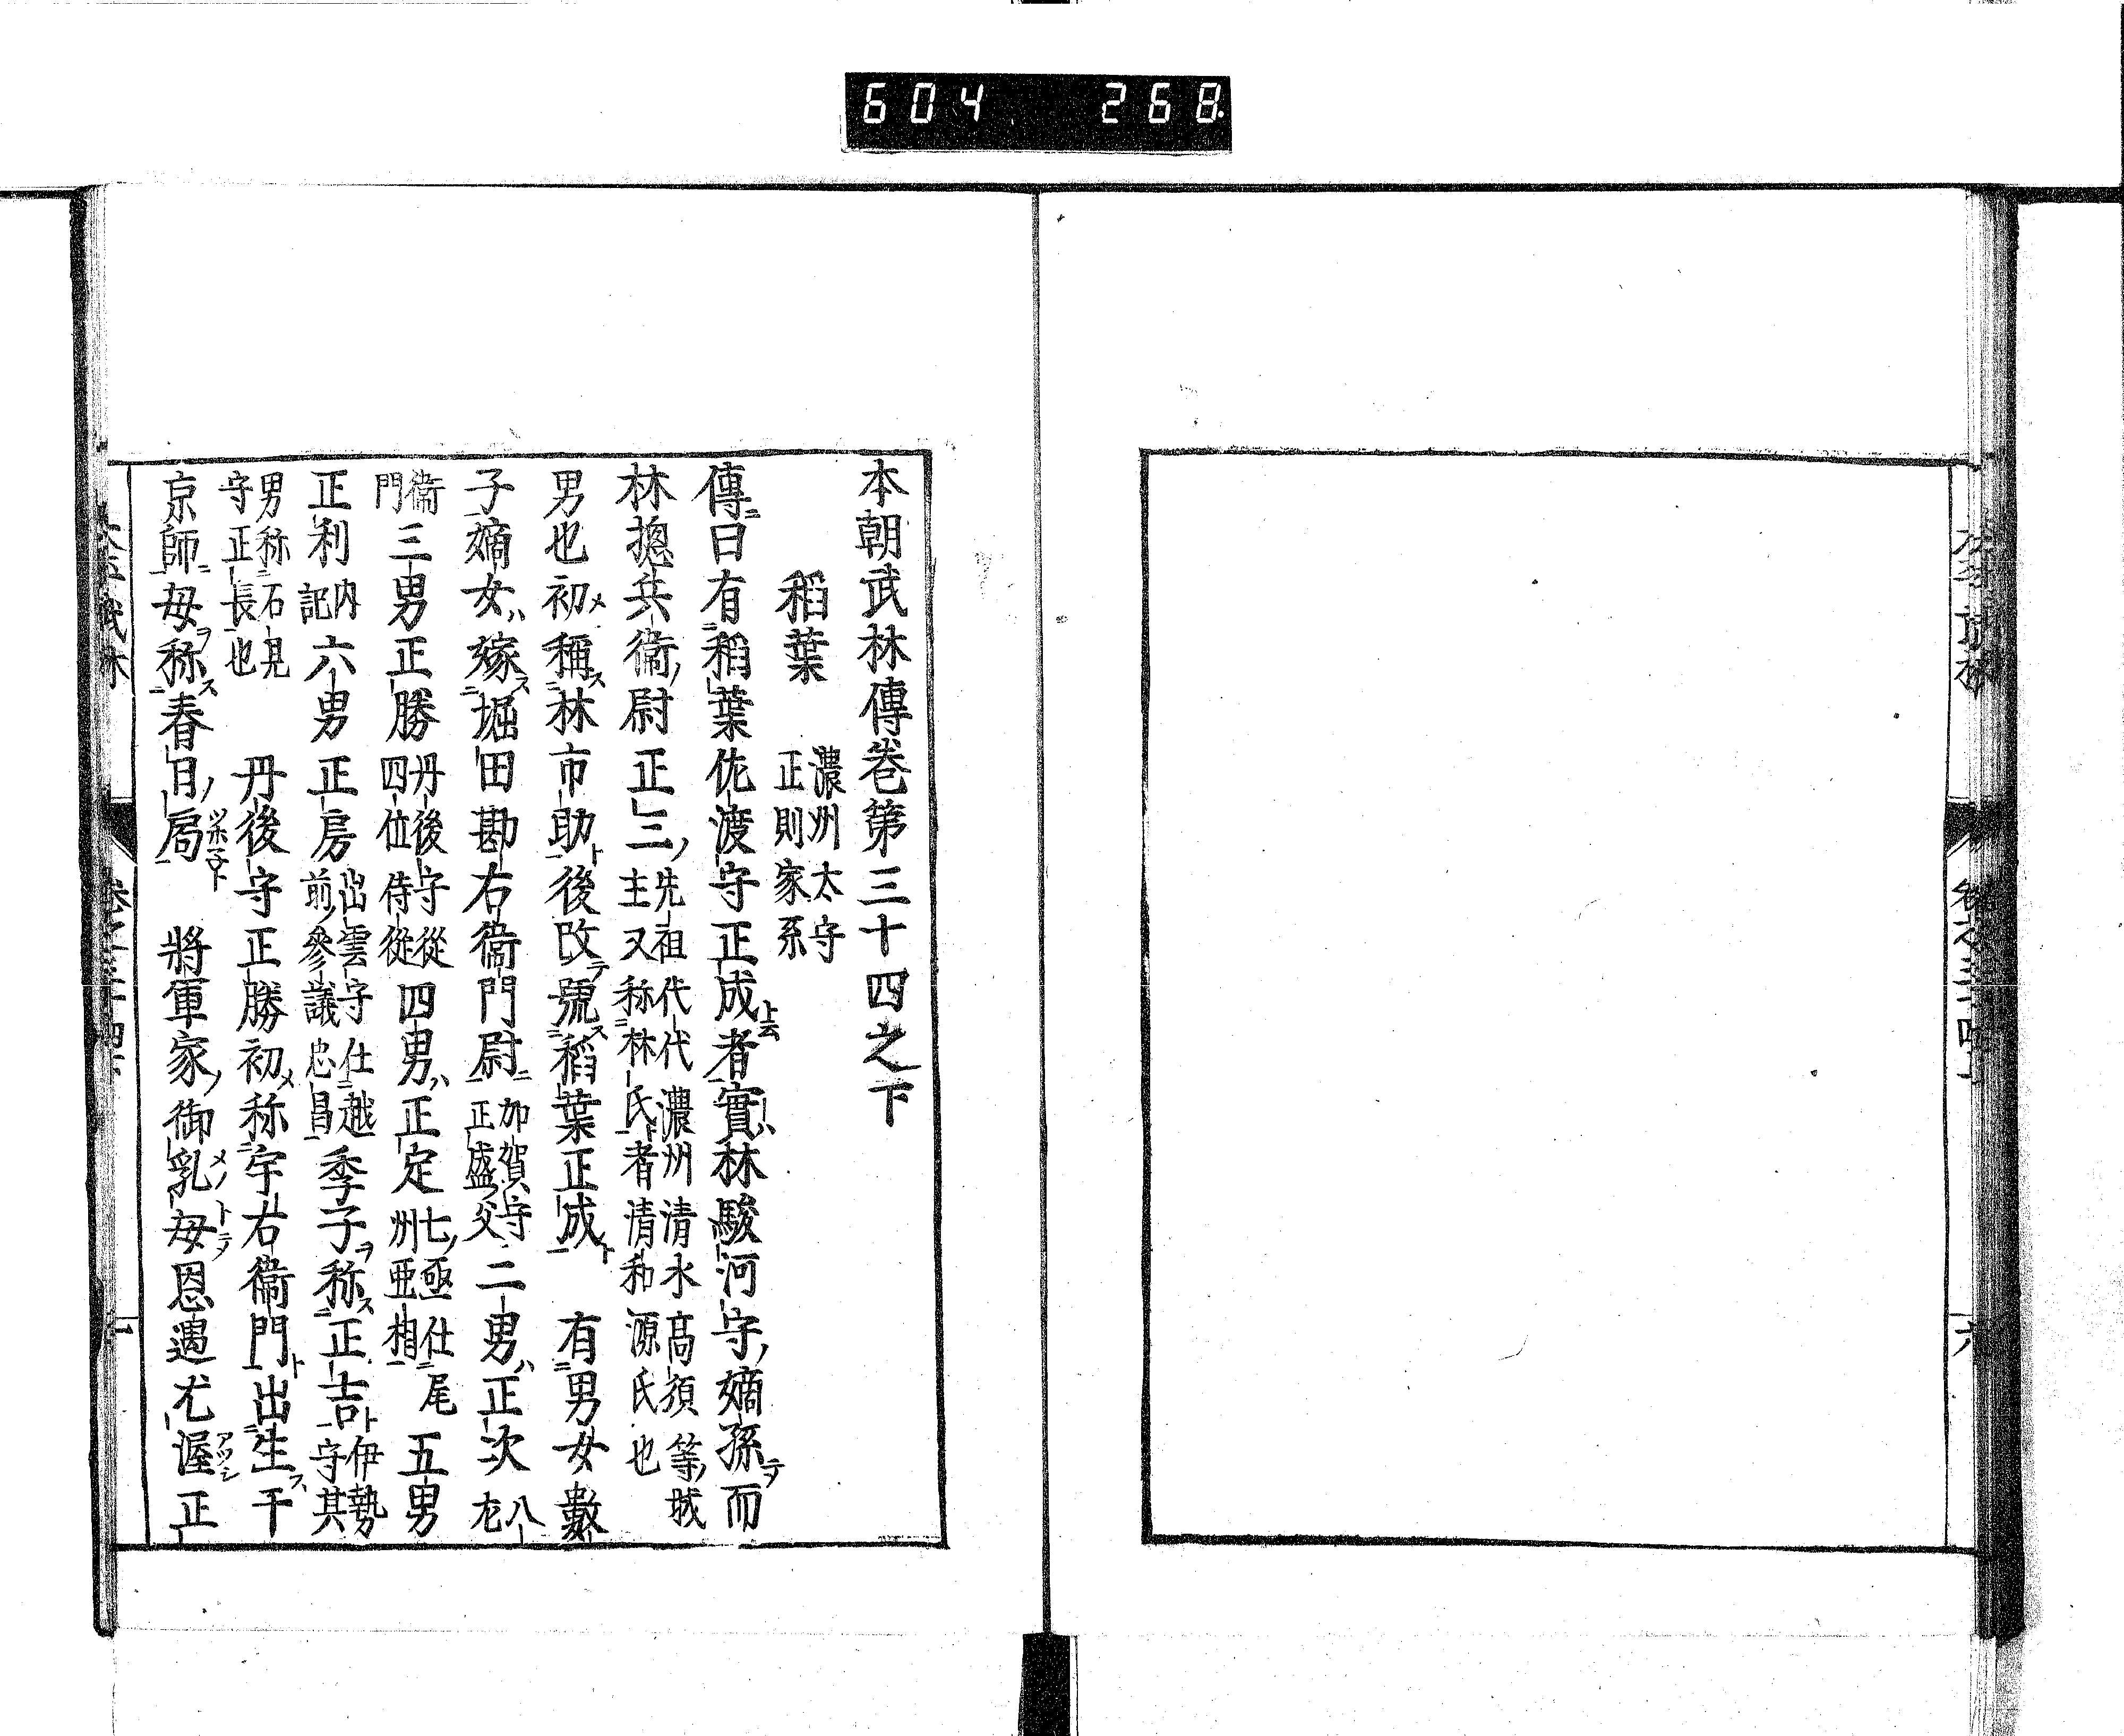 604 268
本朝武林傳卷第三十四之下
稻葉 濃州太守正則家系
傳曰有稻葉佐渡守正成者實林駿河守嫡孫而
林揔兵衞尉正三 先祖代代濃州清水高須等城主又称林氏者清和源氏也
男也初稱林市助後改號稻葉正成 有男女數
子嫡女嫁堀田勘右衞門尉 加賀守正盛父 二男正次 八左
衞門 三男正勝 丹後守從四位侍從 四男正定 七亟仕尾州亜相 五男
正利 内記 六男正房 出雲守仕越前參議忠昌 季子称正吉 伊勢守其
男称石見守正長也 丹後守正勝初称宇右衞門出生干
京師母称春日局 將軍家御乳母恩遇尤渥正